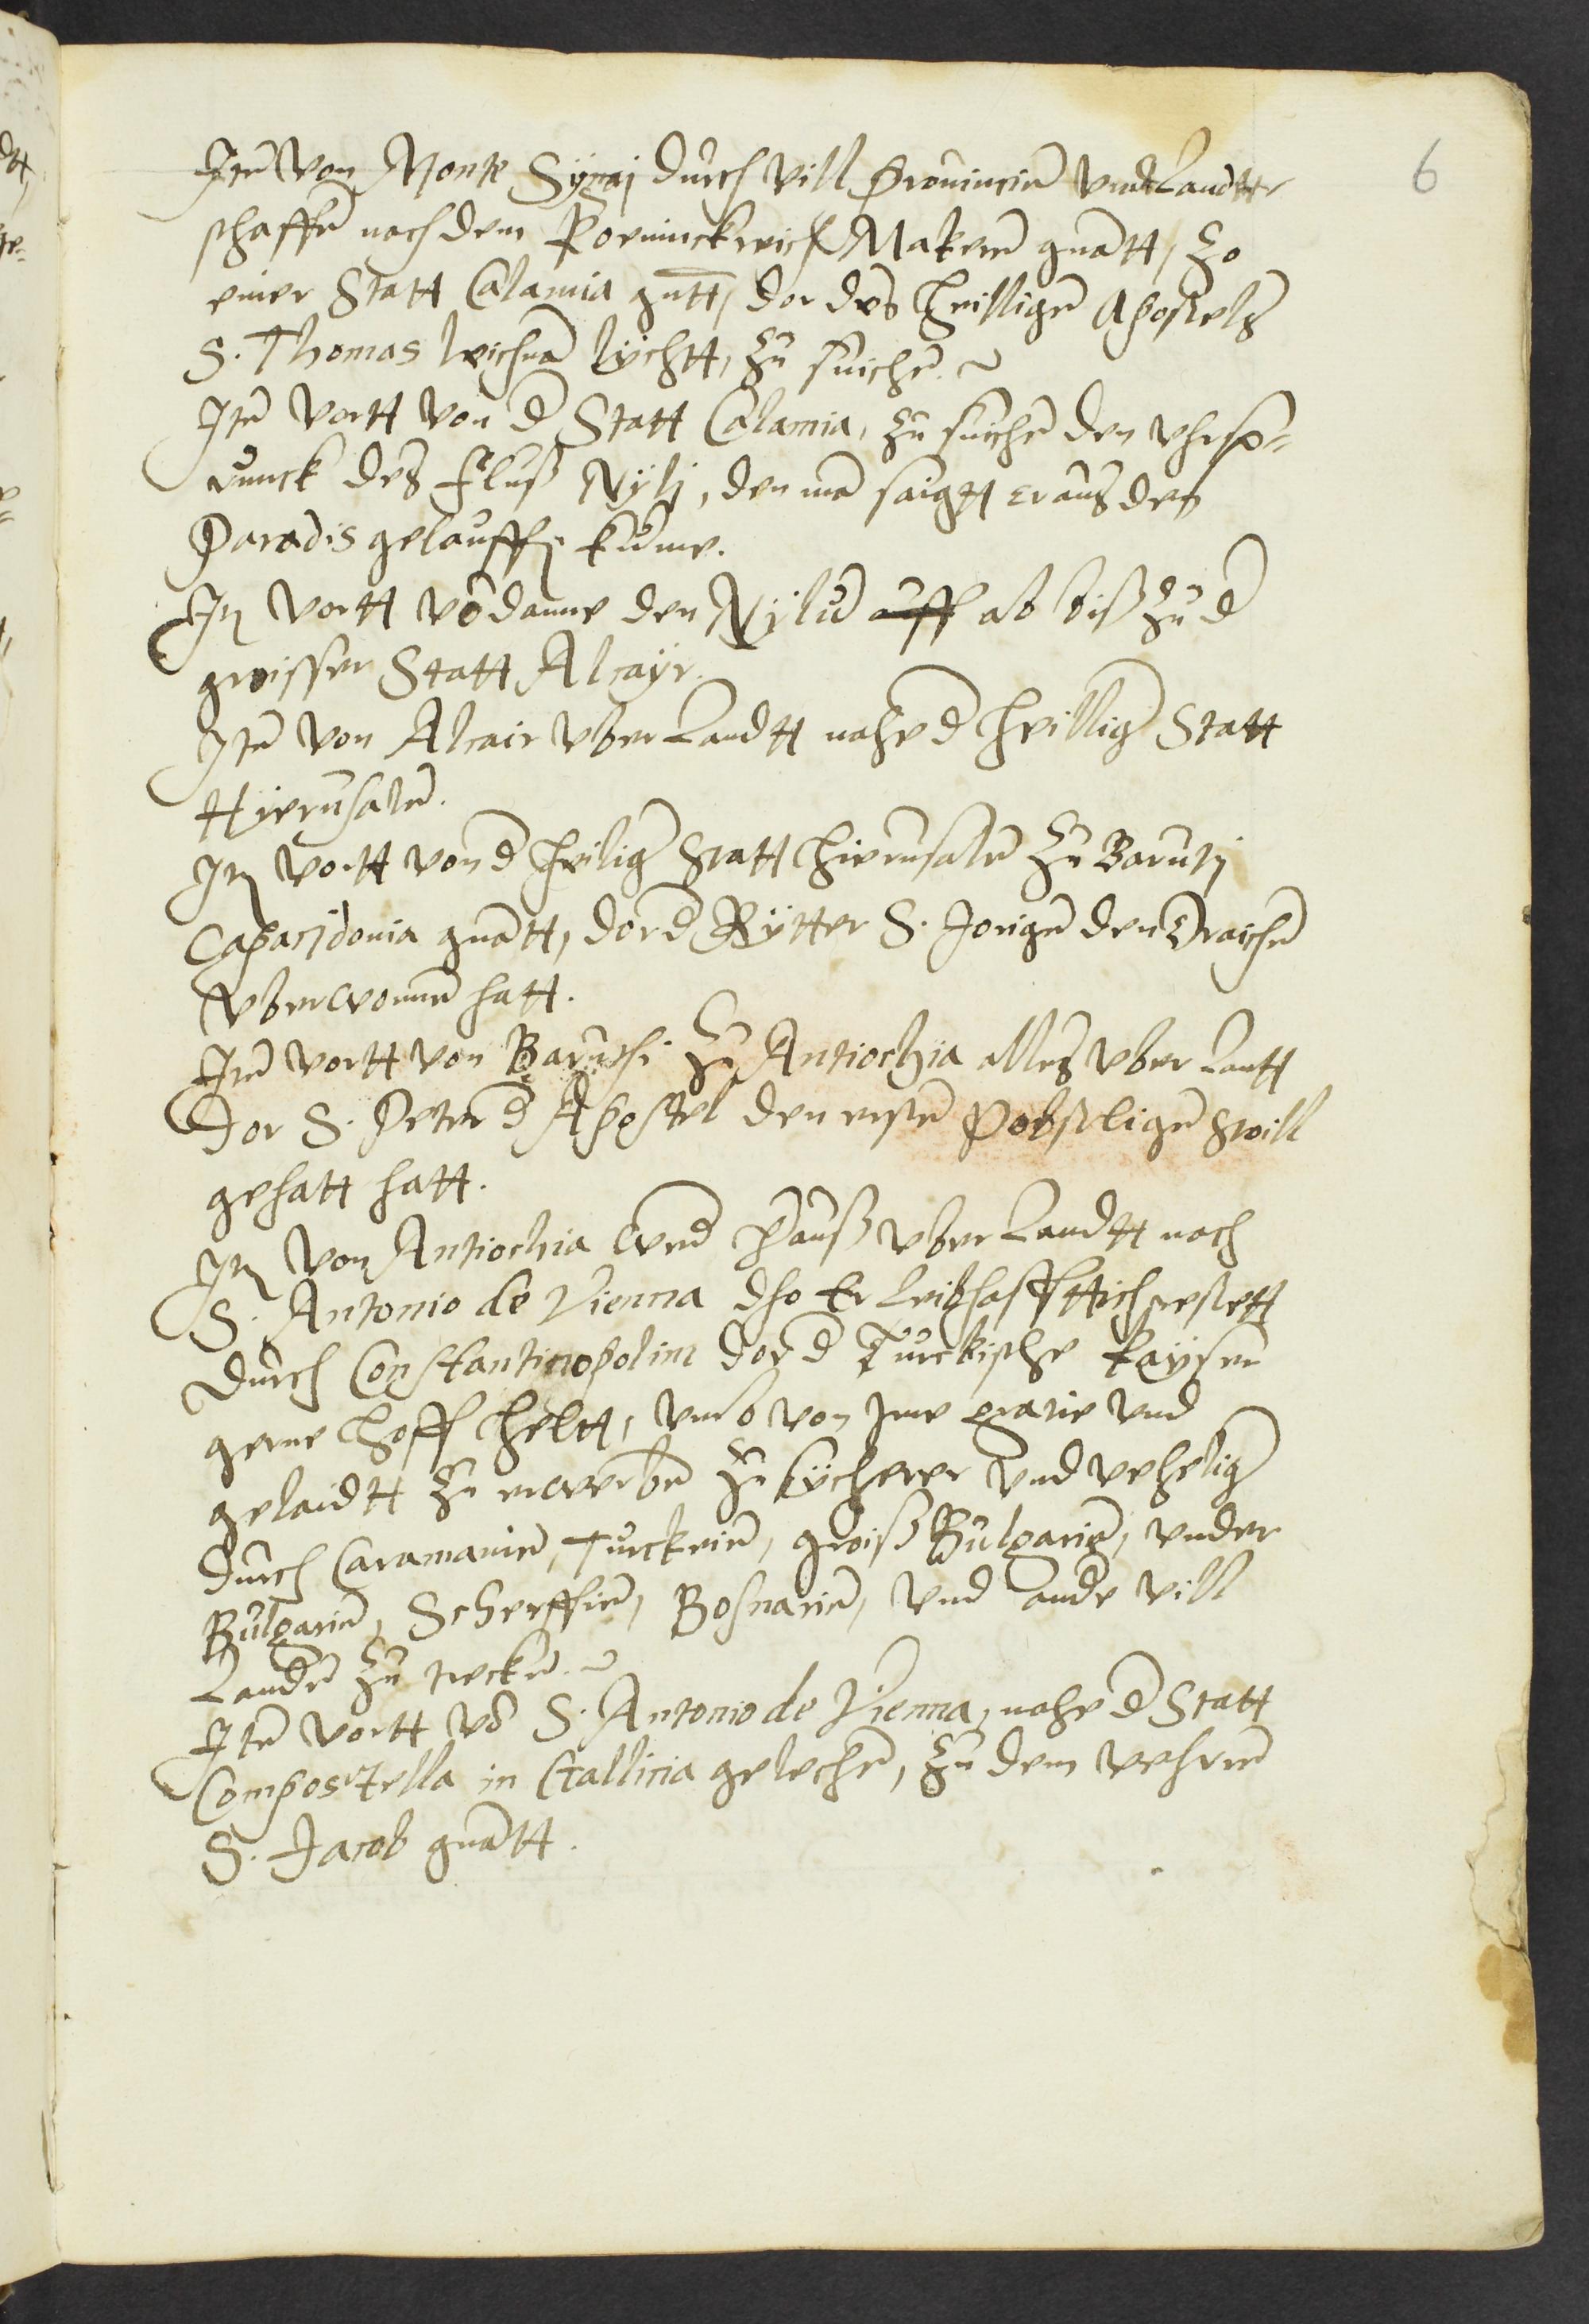 6
Itē Von Monte Sÿnaj durch vill Prouincie͂ vndt Landtt
schaffte͂ nach dem Koeninckreich Makere͂ gna͂tt, zo
einer Statt Calamia gn̄tt, dar des heillige͂ Apostels
S. Thomas leichna͂ lÿchtt, zu suiche͂.
Ite͂ vortt von d͂ Statt Calamia, zu suiche͂ den vhrsp=
runck des fluß Nÿlj, den ma͂ saigtt er aus dem
Paradis gelauffen kūme.
Itm vortt vo͂ danne den Nÿlū auff ab biß zu d͂
groisser Statt Alcaÿr.
Ite͂ von Alcair vber Landtt nahe d͂ heillig͂ Statt
Hÿerusale͂.
Itm vortt von d͂ heilig͂ Statt Hierusale͂ zu Barutj
Capacÿdonia gna͂tt, dar d͂ Rÿtter S. Jorige͂ den Draiche͂
vberwonne͂ hatt.
Ite͂ vortt von Baruthi zu Antiochia alles vber Lantt
dar S. Peter d͂ Apostel den erste͂ Pobstlige͂ stoill
gehatt hatt.
Itm Von Antiochia wed͂ herauß vber Landtt nach
S. Antonio de Vienna dho Er leibhafftich restett
durch Constantinopolim dar d͂ Turckische kaÿser
gerne hoff heltt, vmb von jme gratie vnd
gelaidtt zu erwerbe͂ zu sÿcherer vnd vehelig͂
durch Caramanie͂, Turckeie͂, groiß Bulgarie͂, vnder
Bulgarie͂, Scherffie͂, Bosnarie͂, vnd ande vill
Lande͂ zu trecke͂.
Ite͂ vortt vo͂ S. Antonio de Vienna, nahe d͂ Statt
Compostella in Gallicia geleche͂, zu dem vehree͂
S. Jacob gna͂tt.